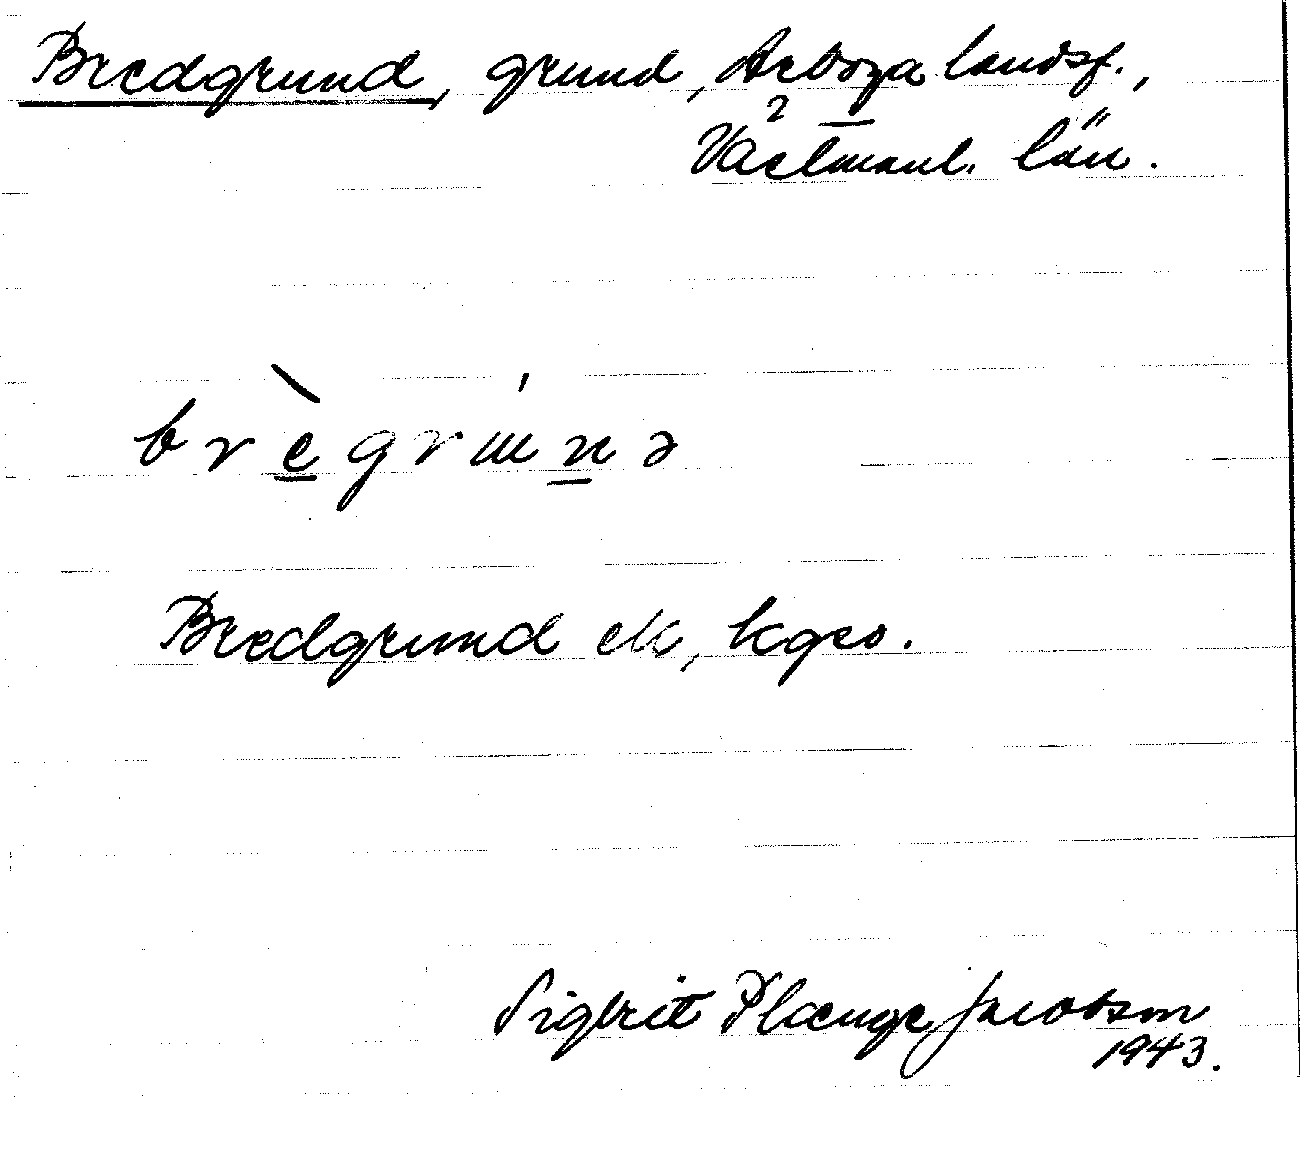 Bredgrund, grund, Arboga landsf.,
Västmanl. län.
brègrúnə
Bredgrund ek, kgeo.
Sigbrit Plænge Jacobson
1943.